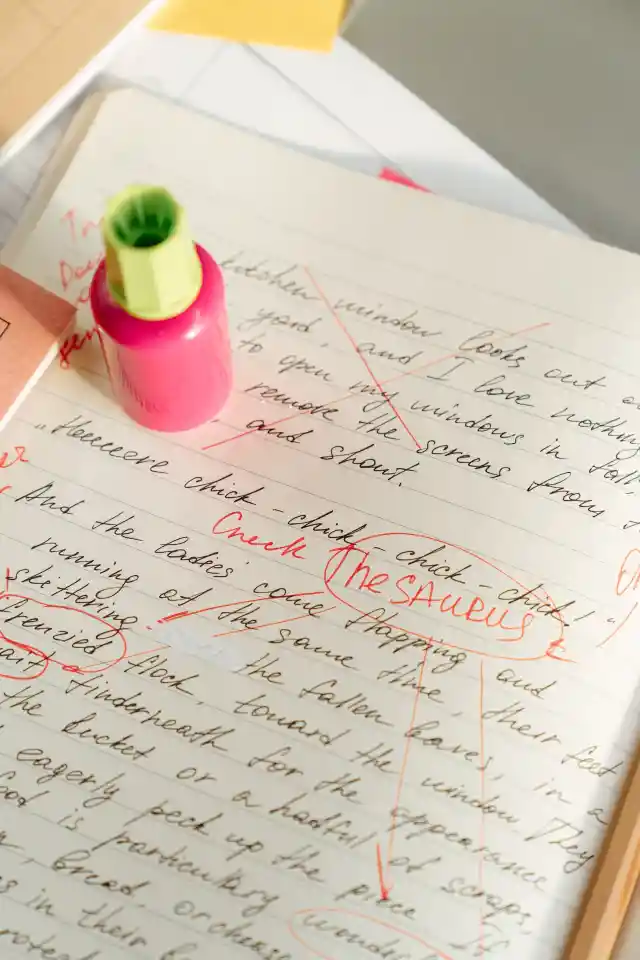 kitchen window looks out
yard, and I love nothing
to open my windows in fall,
remove the screens from
, and shout.
„Heeeeere chick - chick - chick - chick!"
Check TheSAURUS
And the ladies come flapping and
running at the same time, their feet
skittering. the fallen leaves, in a
frenzied flock, toward the window They
wait underneath for the appearance
the bucket or a hatful of scraps,
eagerly peck up the piece If
food is particulary wonder
, bread, or cheese
in their